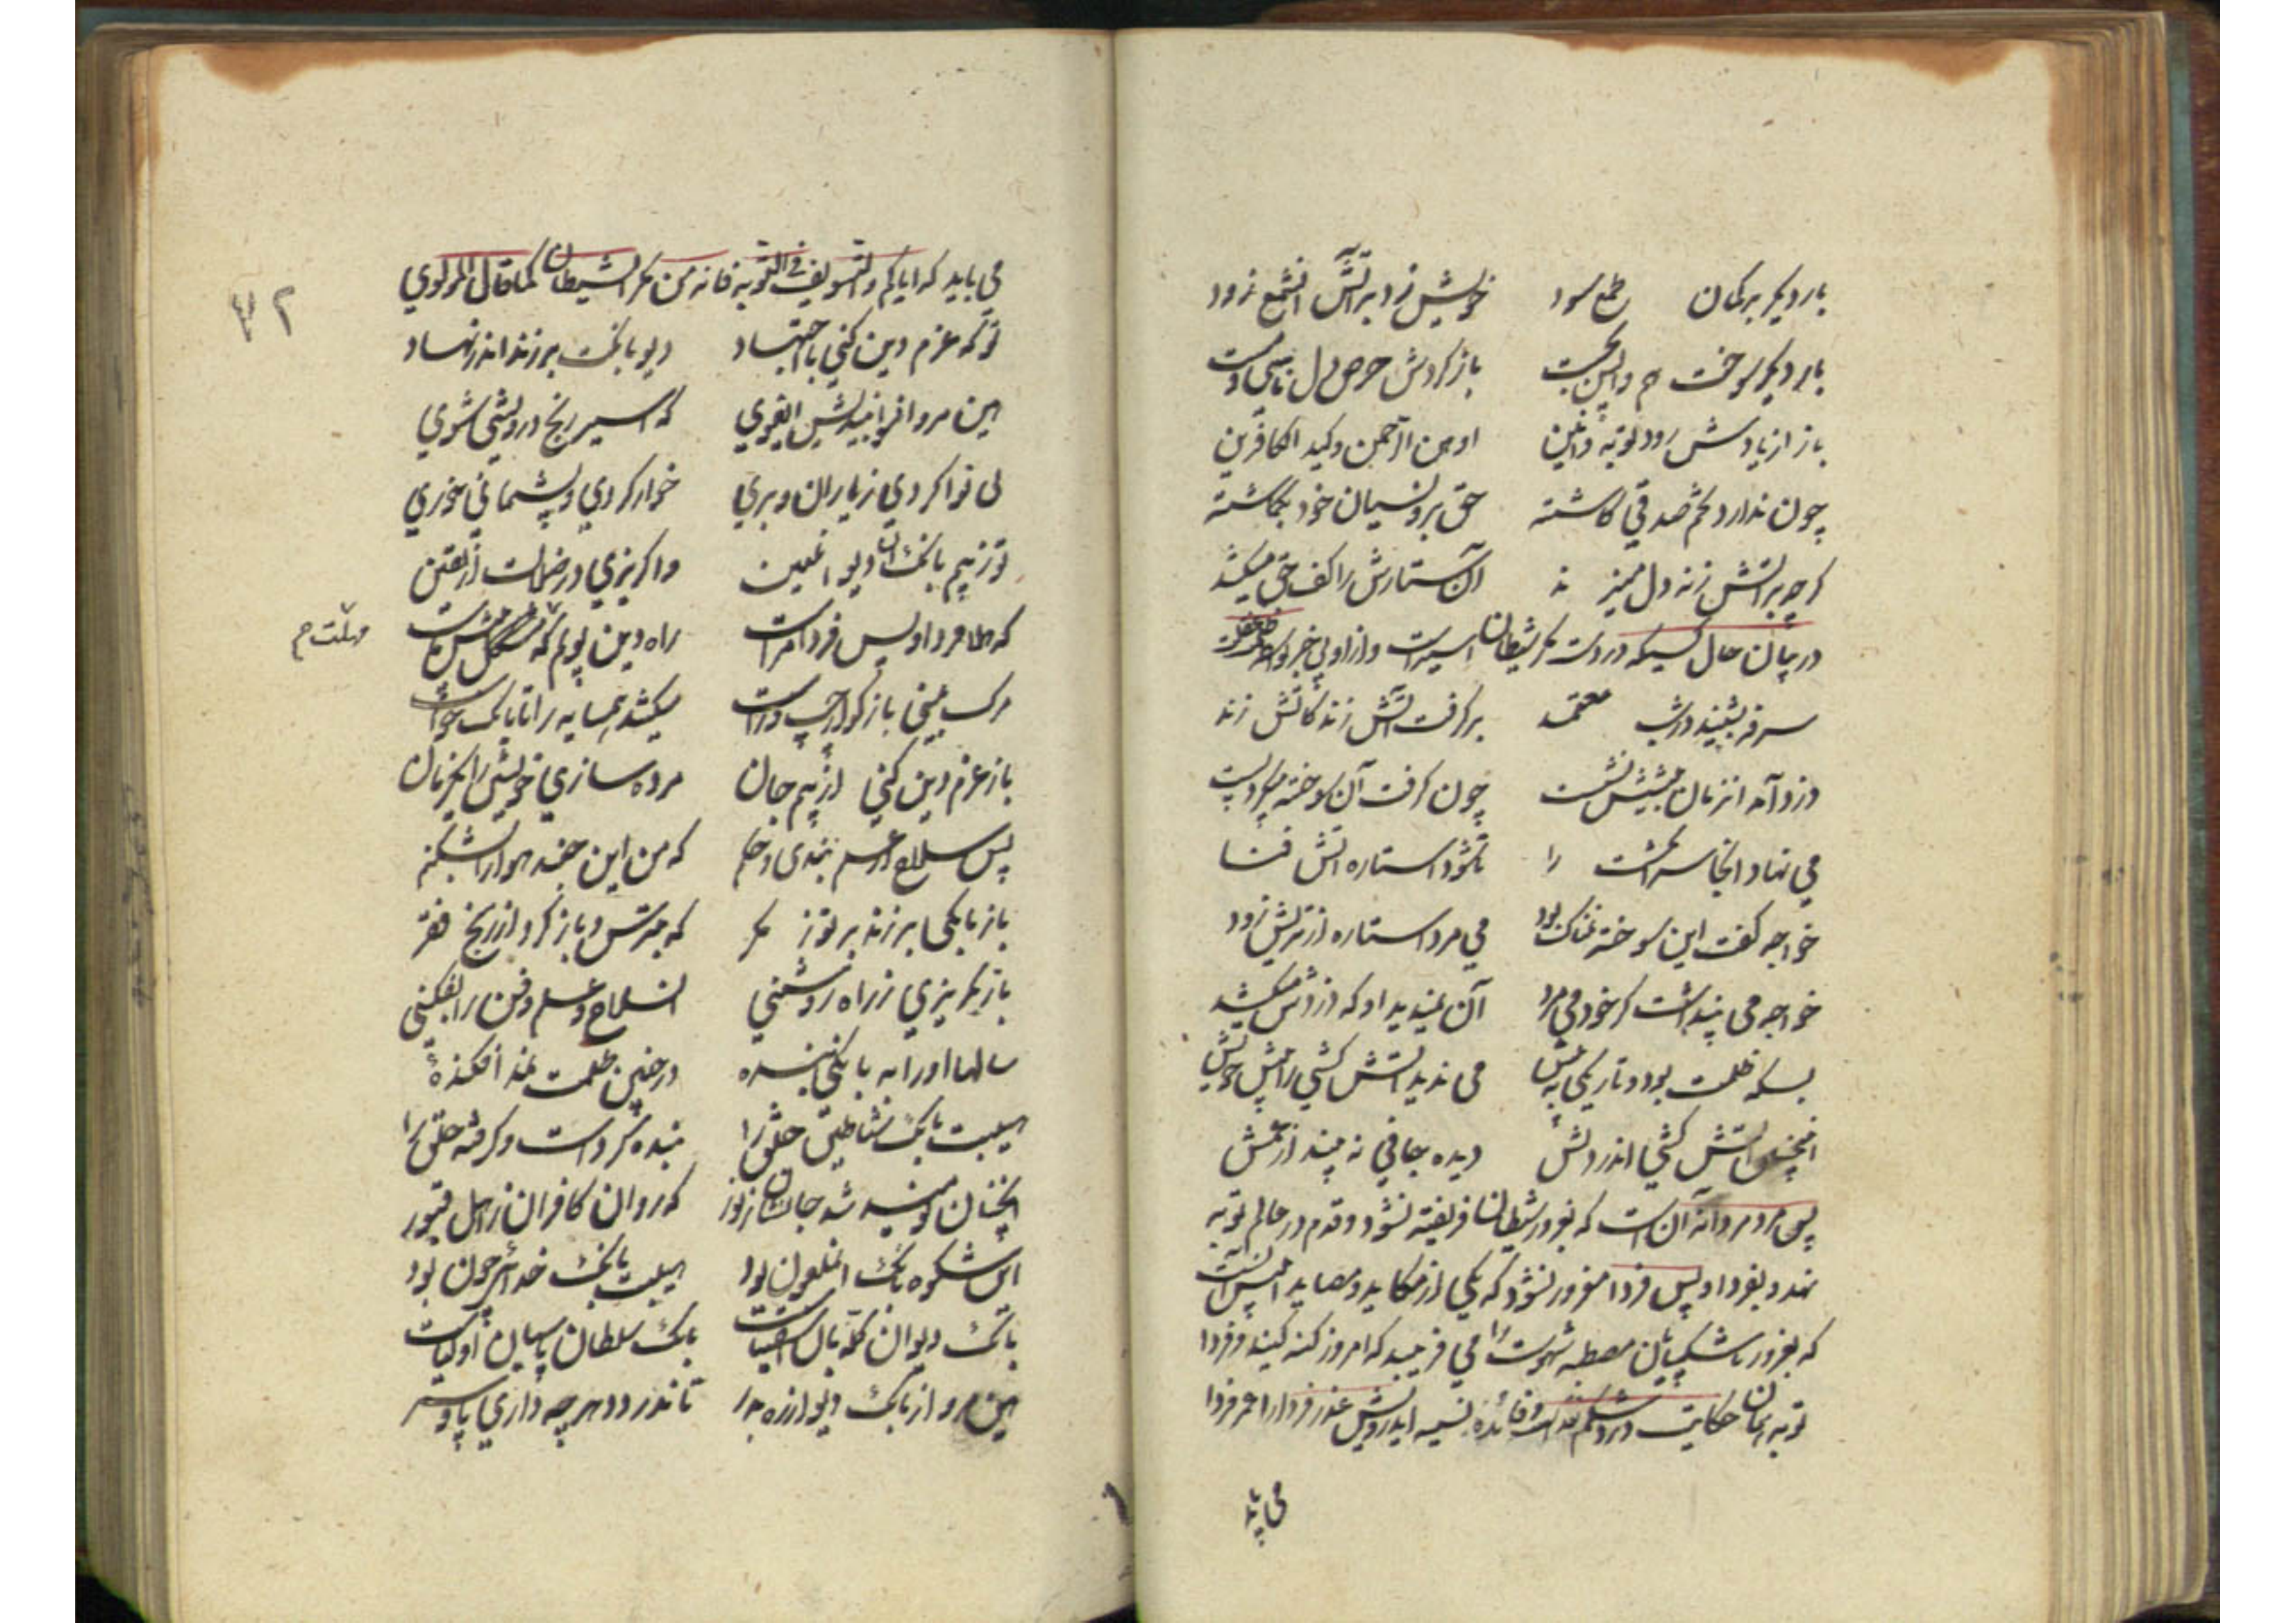 بار دیگر بر گمان طمع سود خویش زد بر آتش آن شمع زود
بار دیگر سوخت هم واپس بجست باز کردش حرص دل ناسی و مست
باز از یادش رود توبه و انین اوهن الرحمن کید الکافرین
چون ندارد تخم صدقی کاشته حق برو نسیان خود بگماشته
گرچه بر آتش زنه دل میزند آن ستارش را کف حق میکشد
در بیان حال کسیکه در دست مکر شیطان اسیرست و از او بی خبر
سرفه بشنید در شب معتمد برگرفت آتش زنه کاتش زند
دزد آمد آنزمان پیشش نشست چون گرفت آن سوخته میکرد پست
می نهاد آنجا سر انگشت را تا شود استاره آتش فنا
خواجه گفت این سوخته نمناک بود می مرد استاره از تریش زود
خواجه می پنداشت کز خود می مرد آن نمیدید او که دزدش میکشد
بسکه ظلمت بود و تاریکی به پیش می ندید آتش کشی را پیش خویش
اینچنین آتش کشی اندر دلش دیده کافر نه بیند از عمش
پس مرد مردانه آن است که بغرور شیطان فریفته نشود و قدم در عالم توبه
نهد و بفردا و پس فردا مغرور نشود که یکی از مکاید و مصاید ابلیس آنست
که بغرور ناشکیبان مصطبه شهوت را می فریبد که امروز گنه کنید و فردا
توبه همان حکایت درد شکم نقد است و فائده نسیه ای درویش عذر فردا را عمر فردا
می باید
می باید که ایاکم والتسویف فی التوبه فانه من مکر الشیطان کما قال المولوی
تو که عزم دین کنی با اجتهاد دیو بانگت بر زند اندر نهاد
هین مرو آنسو بیندیش ای غوی که اسیر رنج و درویشی شوی
بی نوا گردی ز یاران وبری خوار گردی و پشیمانی خوری
تو ز بیم بانگ آن دیو لعین واگریزی در ضلالت از یقین
که هلا فردا و پس فردا مراست راه دین پویم که مهلت پیش ماست
مهلت م
مرگ بینی باز کو از چپ و راست میکشد همسایه را تا بانگ خواست
باز عزم دین کنی از بیم جان مرده سازی خویش را یکزمان
پس سلاح از علم بندی و حکم که من این جند هوا را بشکنم
باز بانگی بر زند بر تو ز مکر که بترس و باز گرد از رنج فقر
باز بگریزی ز راه روشنی آن سلاح و علم و فن را بفکنی
سالها او را به بانگی بنده در چنین ظلمت نمد افکنده
هیبت بانگ شیاطین خلق را بنده کردست و گرفته حلق را
آنچنان نومید شد جانشان ز نور که روان کافران ز اهل قبور
این شکوه بانگ آن ملعون بود هیبت بانگ خدائی چون بود
بانگ دیوان گله بان اشقیاست بانگ سلطان پاسبان اولیاست
هین مرو از بانگ دیو از ره بدر تا ندزدد هر چه داری پا و سر
۳۲